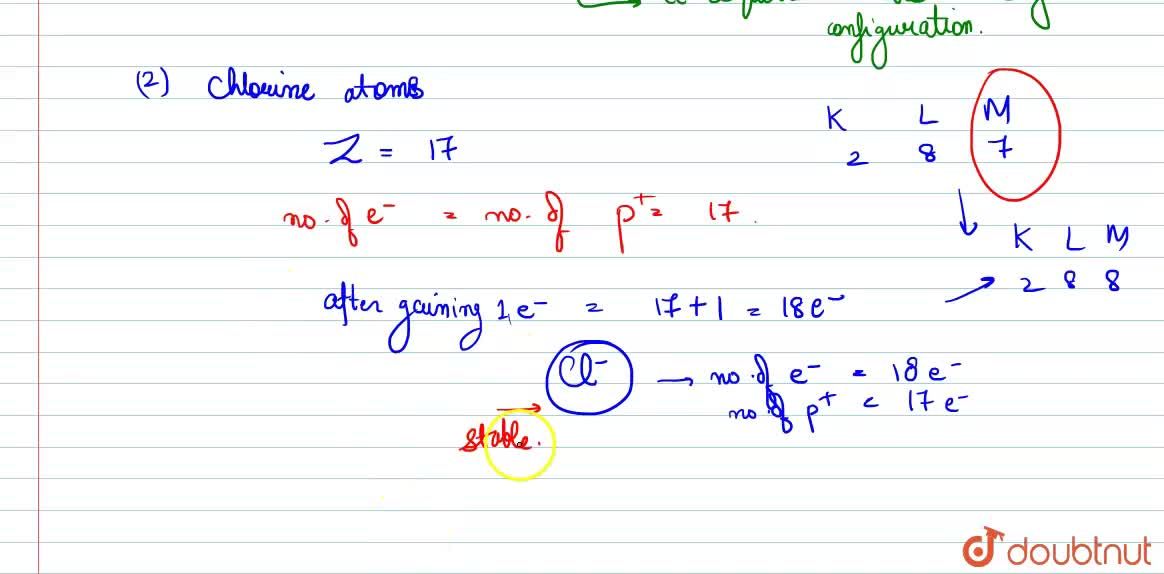 configuration.
(2) Chlorine atoms
K L M
2 8 7
Z = 17
no. of e⁻ = no. of p⁺ = 17.
K L M
2 8 8
after gaining 1 e⁻ = 17 + 1 = 18e⁻
Cl⁻ → no. of e⁻ = 18 e⁻
no. of p⁺ = 17 e⁻
stable.
doubtnut